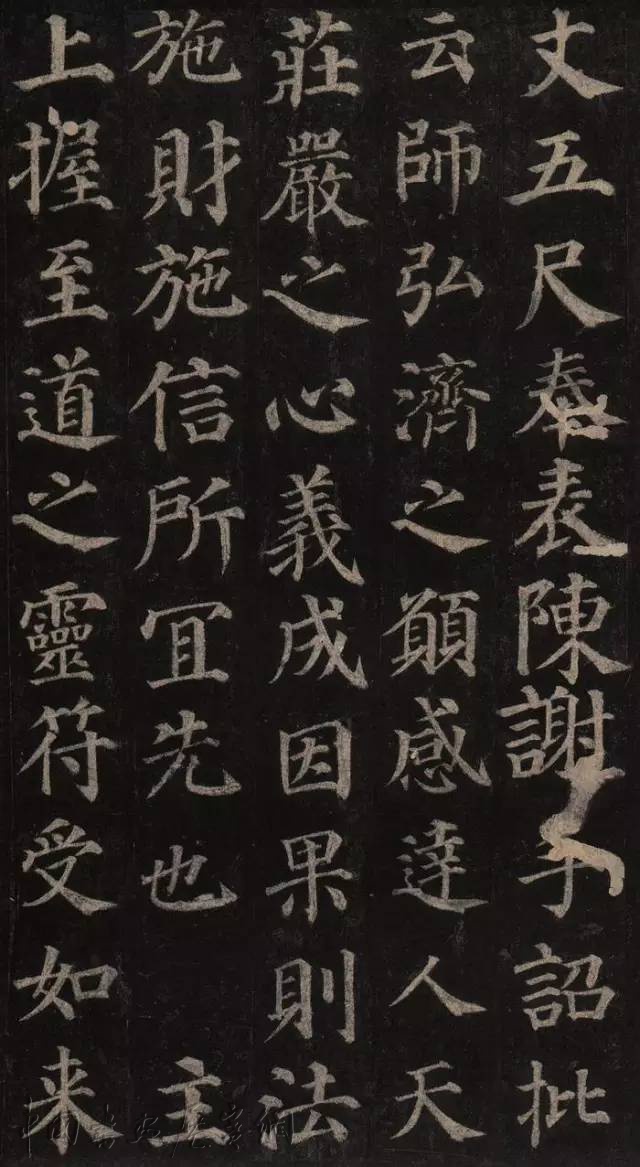 丈五尺奉表陳謝手詔批
云師弘濟之願感達人天
莊嚴之心義成因果則法
施財施信所冝先也　主
上握至道之靈符受如来